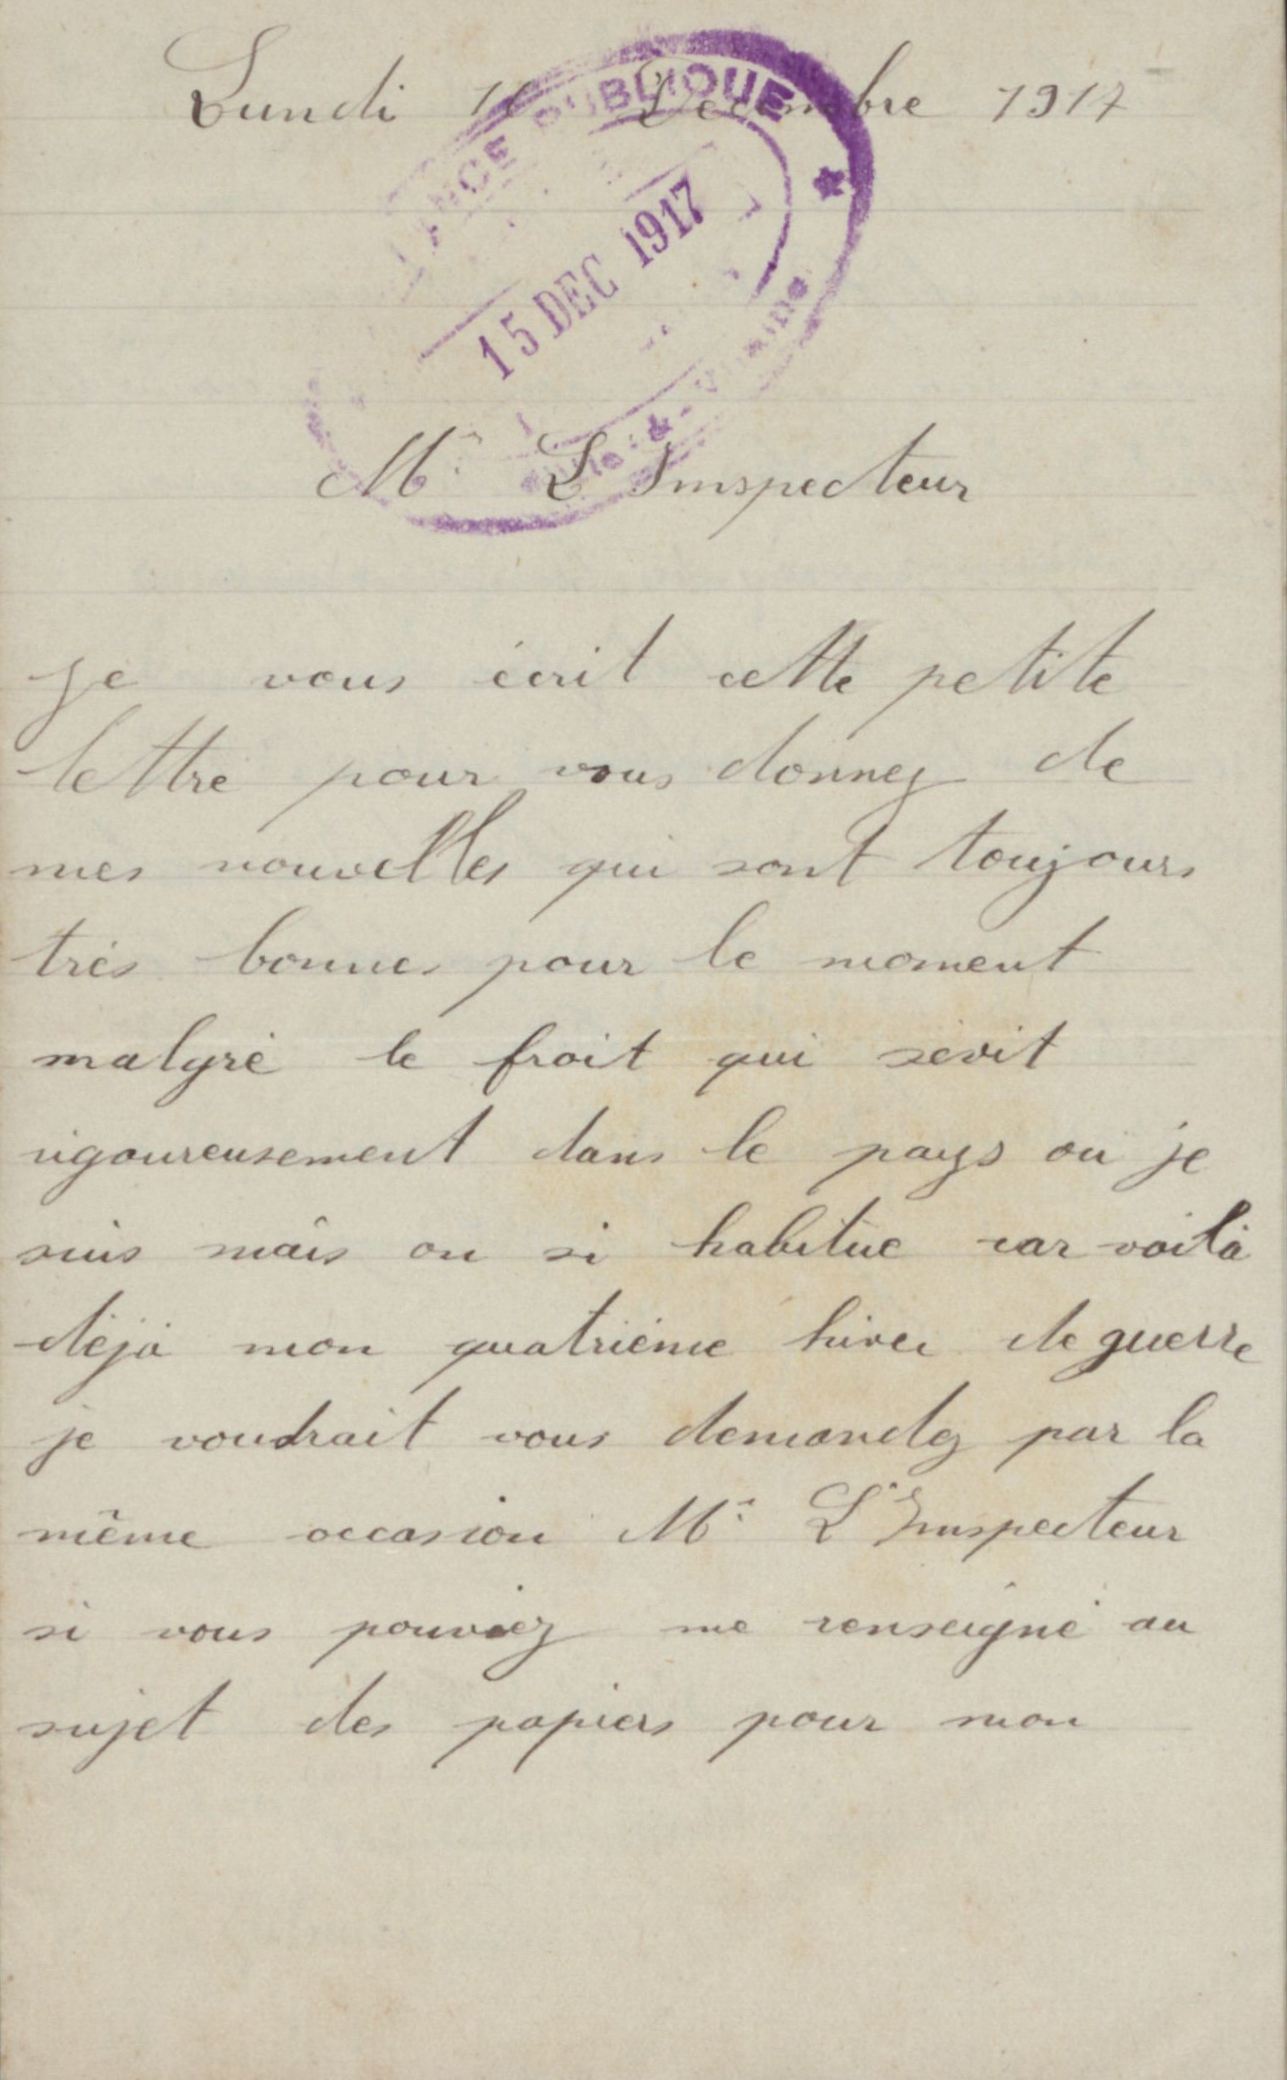 Lundi 1 Decembre 1917
PUBLIQUE
15 DEC 1917
Mr L Imspecteur
je vous écrit cette petite
lettre pour vous donnez de
mes nouvelles qui sont toujours
trés bonnes pour le moment
malgré le froit qui sévit
rigoureusement dans le pays ou je
suis mais on si habitue car voilà
déjà mon quatriéme hiver de guerre
je voudrait vous demandez par la
même occasion Mr L'Imspecteur
si vous pouviez me renseigné au
sujet des papiers pour mon